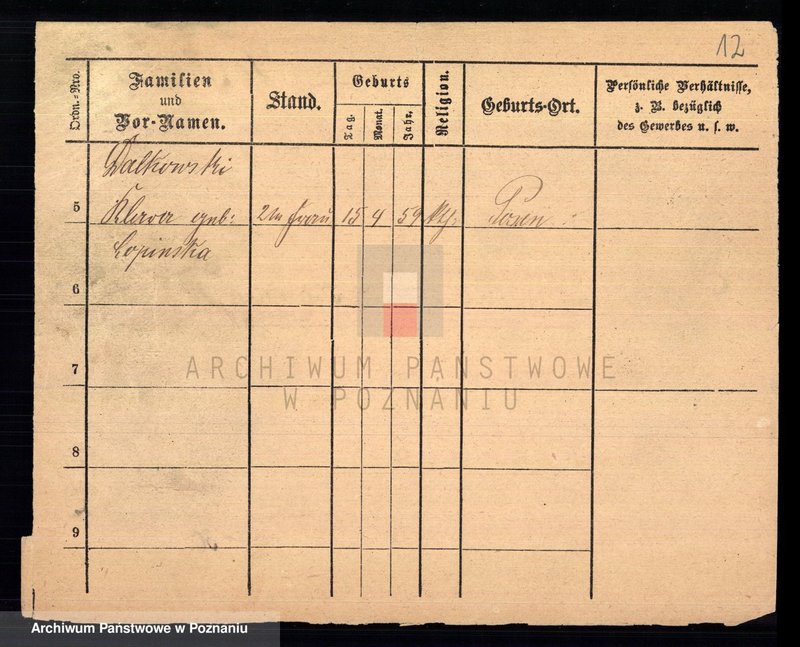 12
Ordn.-Nro.
Familien
und
Vor-Namen.
Stand.
Geburts
Tag.
Monat.
Jahr.
Religion.
Geburts-Ort.
Persönliche Verhältnisse,
z. B. bezüglich
des Gewerbes u. s. w.
Dalkowski
5
Klara geb: 2te Frau 15 4 59 kth: Posen
Lopinska
6
7
8
9
ARCHIWUM PAŃSTWOWE
W POZNANIU
Archiwum Państwowe w Poznaniu